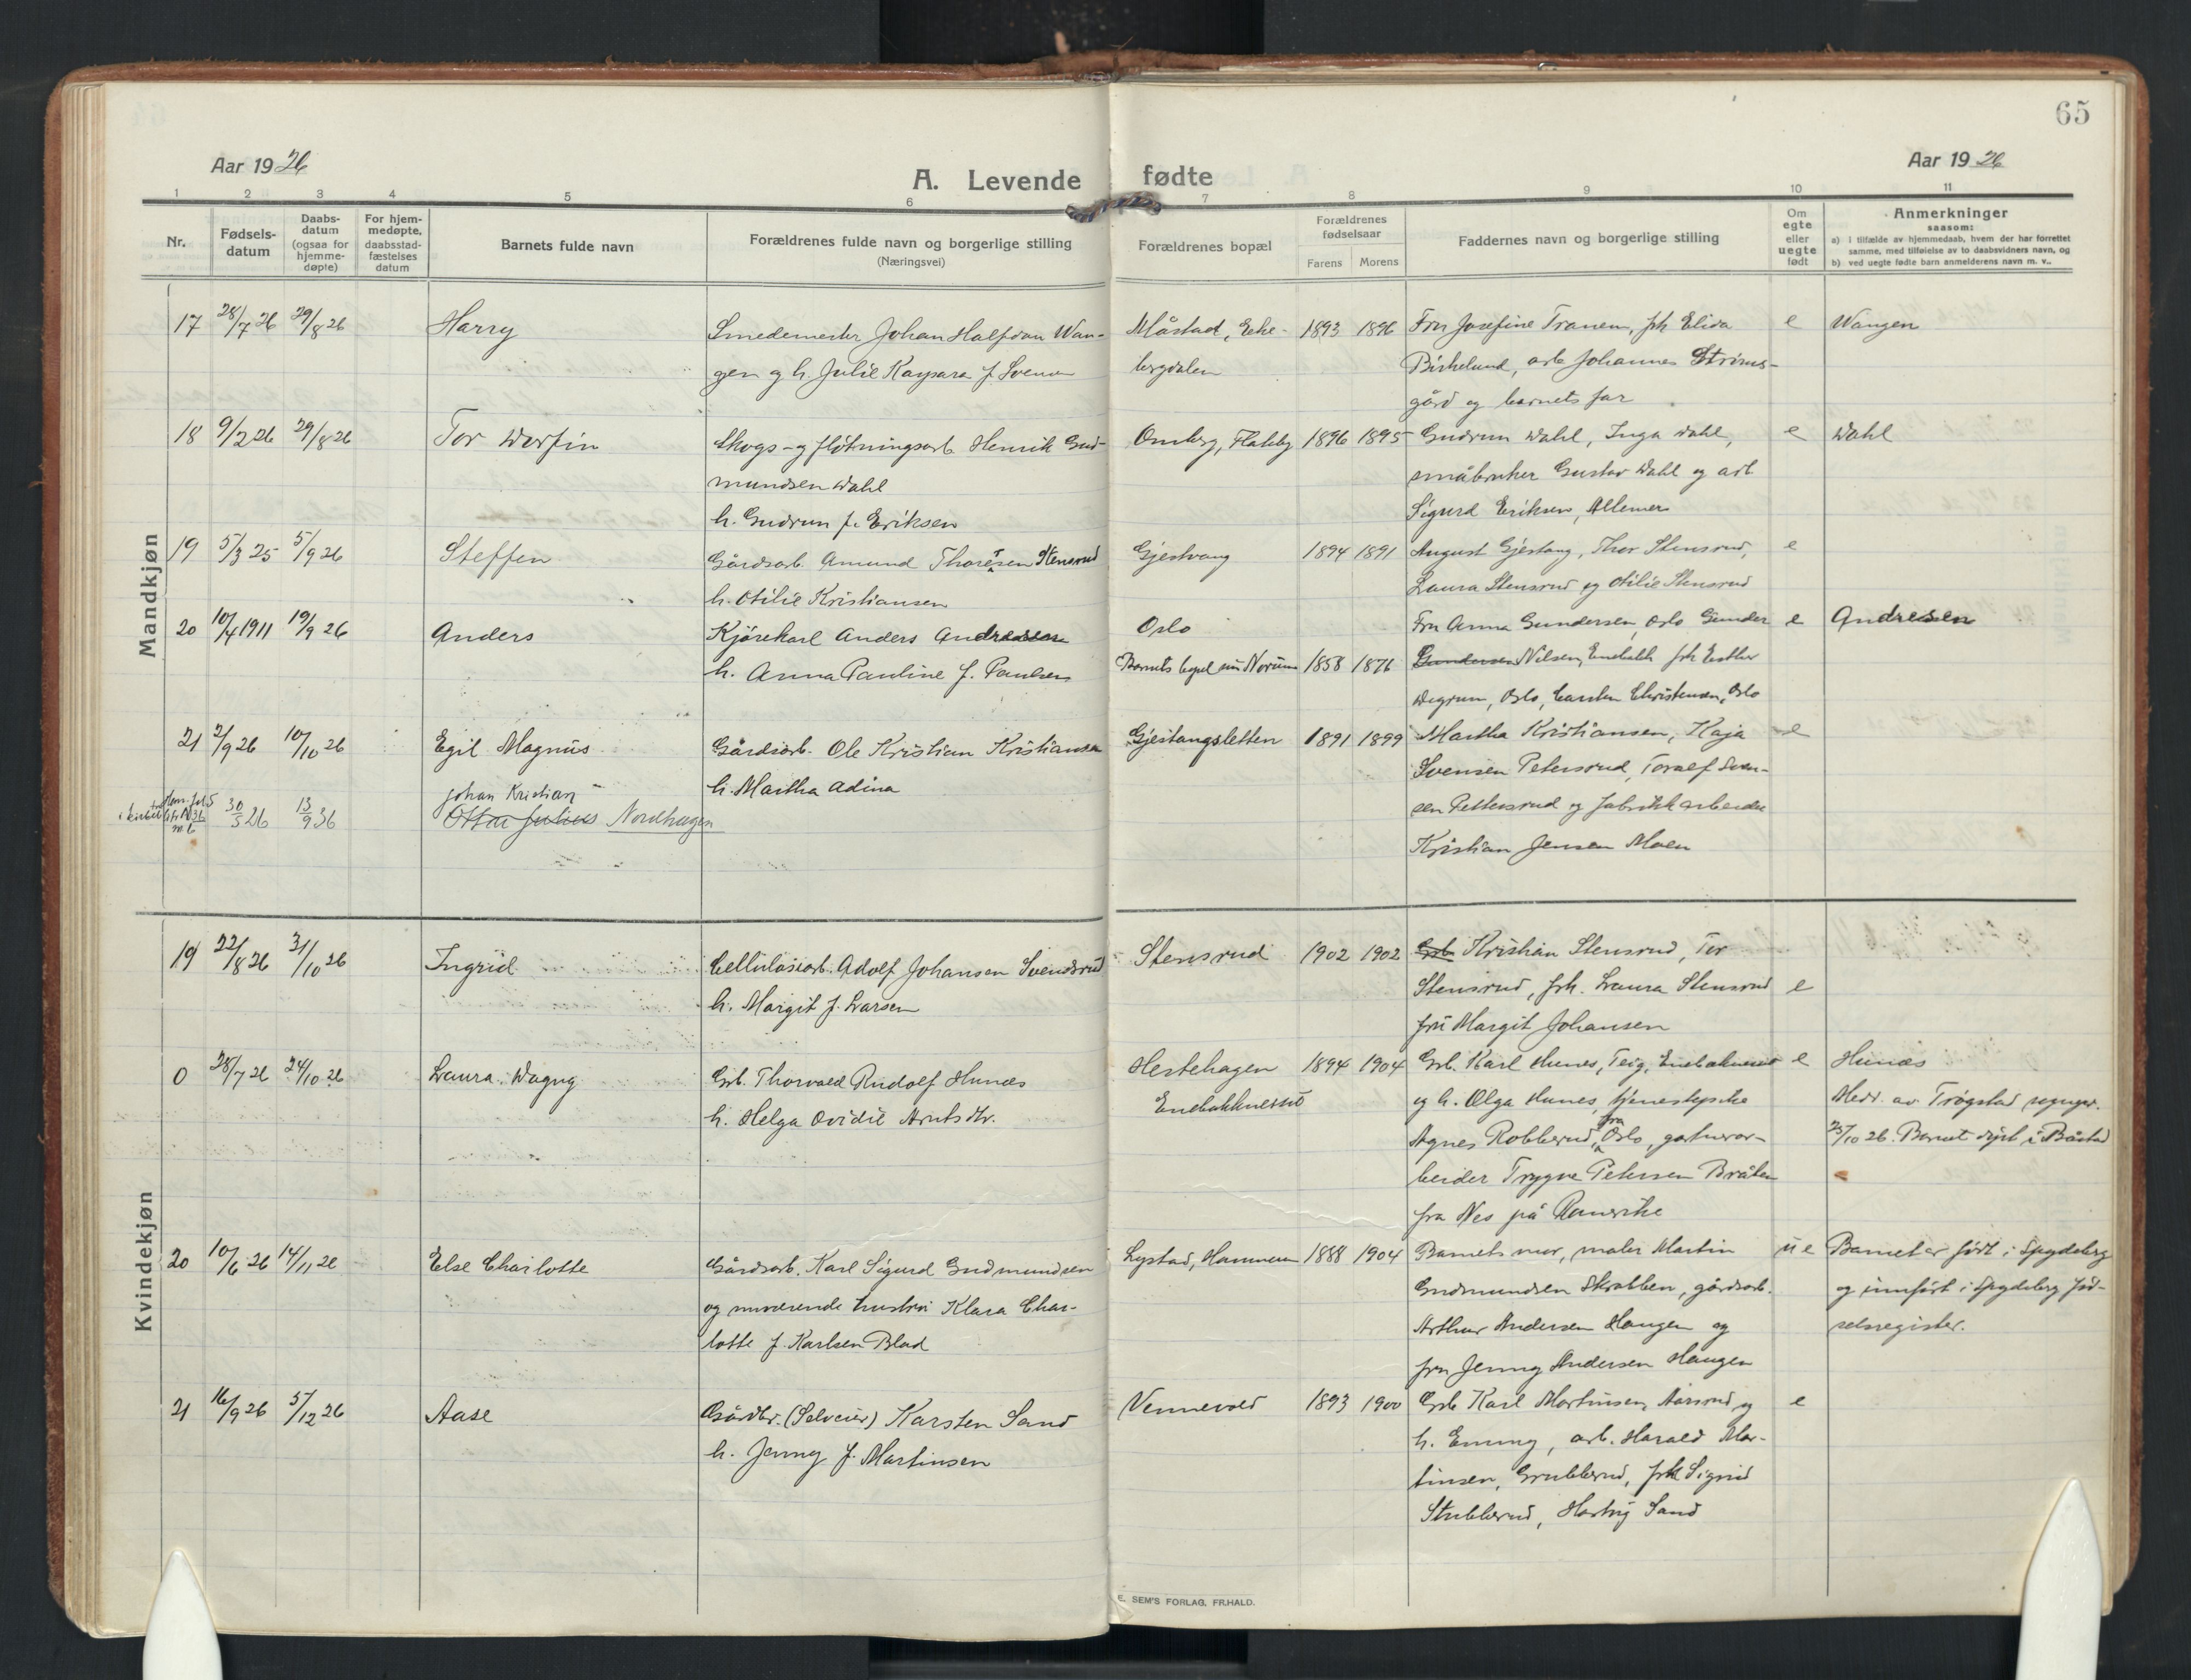 65
Aar 1926
A. Levende fødte
Aar 1926
1 2 3 4 5 6 7 8 9 10 11
Nr.
Fødsels-
datum
Daabs-
datum
(ogsaa for
hjemme-
døpte)
For hjem-
medøpte,
daabsstad-
fæstelses
datum
Barnets fulde navn
Forældrenes fulde navn og borgerlige stilling
(Næringsvei)
Forældrenes bopæl
Forældrenes
fødselsaar
Farens Morens
Faddernes navn og borgerlige stilling
Om
egte
eller
uegte
født
Anmerkninger
saasom:
a) i tilfælde av hjemmedaab, hvem der har forrettet
samme, med tilføielse av to daabsvidners navn, og
b) ved uegte fødte barn anmelderens navn m. v..
Mandkjøn
17 28/7 26 29/8 26 Harry
Smedemester Johan Halfdan Wan-
gen og h. Julie Kaspara f. Svensen
Måstad, Eke-
bergdalen
1893 1896
Fru Josefine Tranem, frk Elida
Birkelund, arb Johannes Strøms-
gård og barnets far
e Wangen
18 9/2 26 29/8 26 Tor Dorfin
Skogs- og fløtningsarb Henrik Gud-
mundsen Dahl
h. Gudrun f. Eriksen
Omberg, Flateby 1896 1895
Gudrun Dahl, Inga Dahl,
småbruker Gustav Dahl og arb
Sigurd Eriksen, Allemer
e Dahl
19 5/3 25 5/9 26 Steffen
Gårdsarb. Amund Thoresen Stensrud
h. Otilie Kristiansen
Gjestvang 1894 1891
August Gjestang, Thor Stensrud,
Laura Stensrud og Otilie Stensrud
e
20 10/4 1911 19/9 26 Anders
Kjørekarl Anders Andresen
h. Anna Pauline f. Paulsen
Oslo
Barnets bopel nu Norum 1858 1876
Fru Anna Gundersen, Oslo Gunder
Gundersen Nilsen, Enebakk frk Esther
Wegrun, Oslo, Carsten Christensen, Oslo
e Andresen
21 2/9 26 10/10 26 Egil Magnus
Gårdsarb. Ole Kristian Kristiansen
h. Martha Adina
Gjestangsletten 1891 1899
Martha Kristiansen, Kaja
Svensen Petersrud, Toralf Sven-
sen Pettersrud og fabrikkarbeider
Kristian Jensen Moen
e
30/5 26 13/9 36
Johan Kristian
Ottar Julius Nordhagen
Kvindekjøn
19 22/8 26 31/10 26 Ingrid
Cellulosearb. Adolf Johansen Svendsrud
h. Margit f. Larsen
Stensrud 1902 1902
Grb. Kristian Stensrud, Tor
Stensrud, frk. Laura Stensrud
fru Margit Johansen
e
0 28/7 26 24/10 26 Laura Dagny
Grb. Thorvald Rudolf Hunæs
h. Helga Ovidie Arntsdtr.
Hestehagen
Enebakkneset
1894 1904
Grb. Karl Hunes, Teig, Enebakneset
og h. Olga Hunes, tjenestepike
Agnes Robberud, fra Oslo, gartnerar-
beider Trygve Petersen Bråten
fra Nes på Romerike
e Hunæs
Medd. av Trøgstad sogneprest.
25/10 26. Barnet døpt i Båstad
20 10/6 26 14/11 26 Else Charlotte
Gårdsarb. Karl Sigurd Gudmundsen
og nuværende hustru Klara Char-
lotte f. Karlsen Blad
Lystad, Hammeren 1888 1904
Barnets mor, maler Martin
Gudmundsen Skrabben, gårdsarb.
Arthur Andersen Haugen og
fru Jenny Andersen Haugen
ue Barnet er født i Spydeberg
og innført i Spydeberg fød-
selsregister.
21 16/9 26 5/12 26 Aase
Gårdbr. (Selveier) Karsten Sand
h. Jenny f. Martinsen
Vennevold 1893 1900
Grb Karl Martinsen, Aarsrud, og
h. Emmy, arb. Harald Mar-
tinsen, Grubberud, frk Sigrid
Stubberud, Hartvig Sand
e
E. SEM'S FORLAG, FR.HALD.